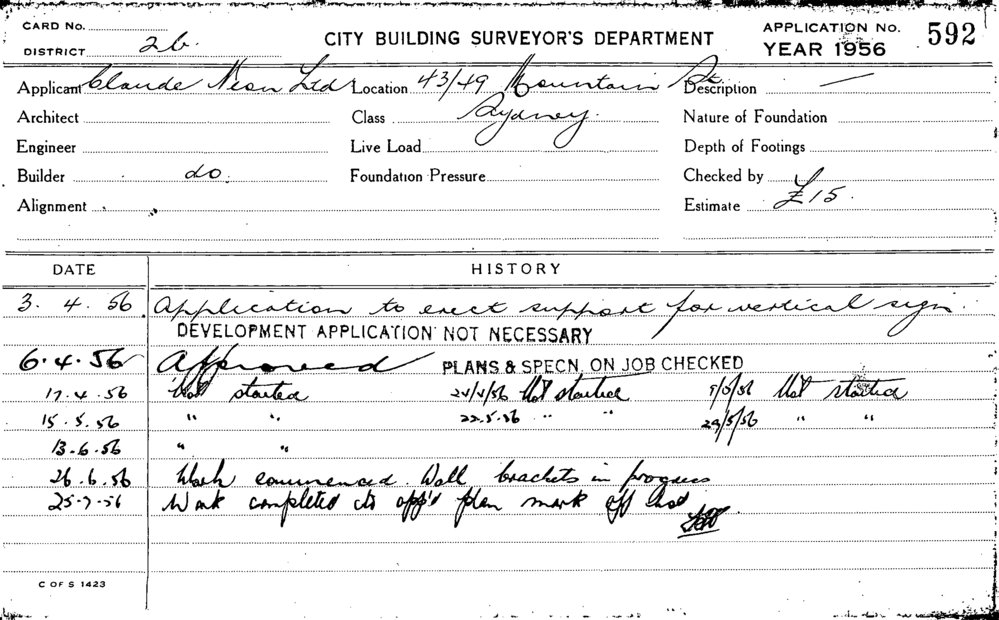 CARD No.
DISTRICT 26.
CITY BUILDING SURVEYOR'S DEPARTMENT
APPLICATION No. 592
YEAR 1956
Applicant Claude Neon Ltd Location 43/49 Mountain St Description —
Architect Class Sydney. Nature of Foundation
Engineer Live Load Depth of Footings
Builder do. Foundation Pressure Checked by
Alignment Estimate £15.
DATE HISTORY
3. 4. 56. Application to erect support for vertical sign.
DEVELOPMENT APPLICATION NOT NECESSARY
6.4.56 Approved PLANS & SPECN. ON JOB CHECKED
17.4.56 Not started 24/4/56 Not started 9/5/56 Not started
15.5.56 " " 22.5.56 " " 29/5/56 " "
13.6.56 " "
26.6.56 Work commenced. Wall brackets in progress
25-7-56 Work completed to app'd plan mark off
C OF S 1423